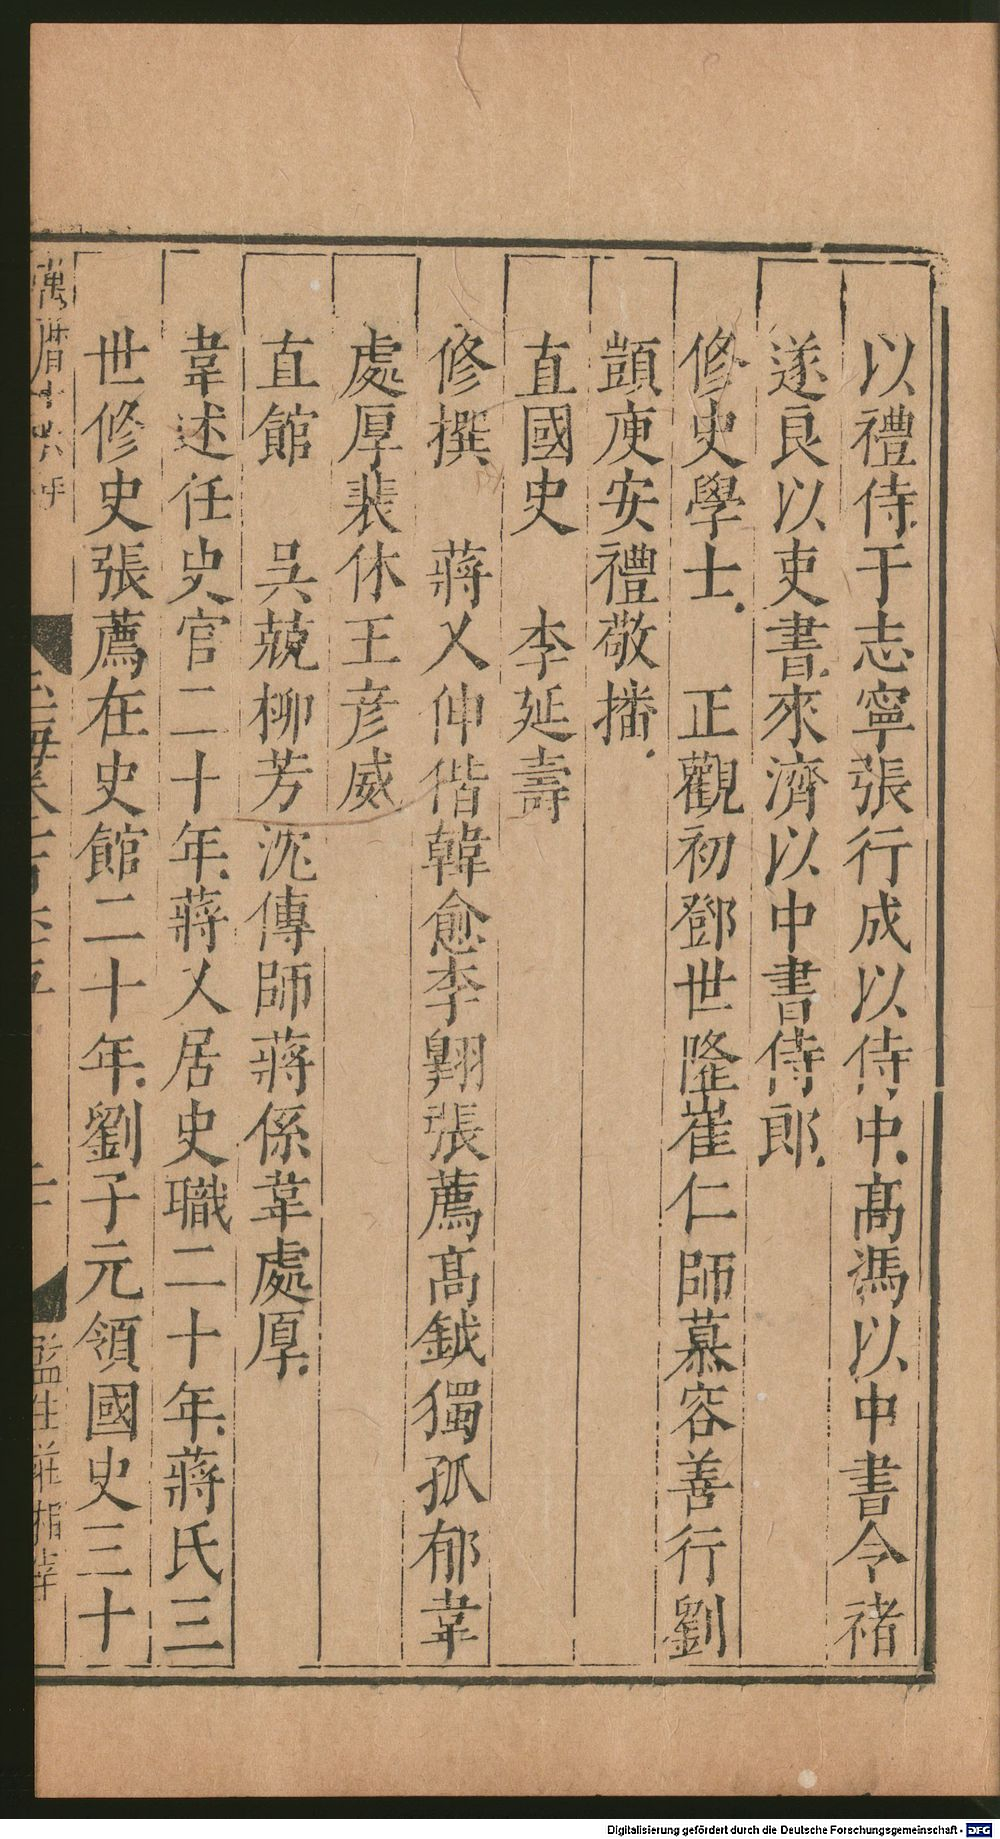 以禮侍于志寧張行成以侍中髙馮以中書令禇
遂良以吏書來濟以中書侍郎
修史學士　正觀初鄧世隆崔仁師慕容善行劉
顗庾安禮敬播
直國史　李延壽
修撰　蔣乂伸偕韓愈李翺張薦髙鉞獨孤郁韋
處厚裴休王彦威
直館　吳兢柳芳沈傳師蔣係韋處厚
韋述任史官二十年蔣乂居史職二十年蔣氏三
世修史張薦在史館二十年劉子元領國史三十
萬曆十六年
監生莊
Digitalisierung gefördert durch die Deutsche Forschungsgemeinschaft - DFG